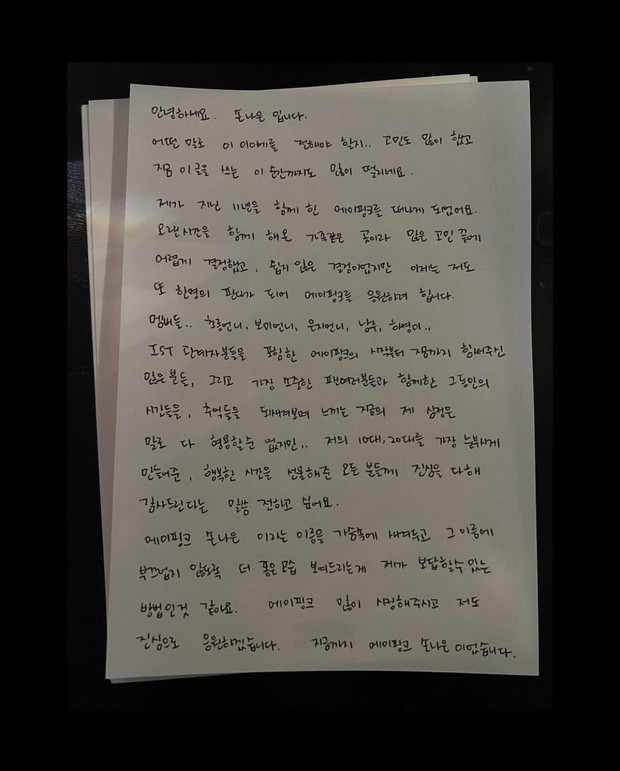 안녕하세요. 손나은 입니다.
어떤 말로 이 이야기를 전해야 할지.. 고민도 많이 했고
지금 이 글을 쓰는 이 순간까지도 많이 떨리네요.
제가 지난 11년을 함께 한 에이핑크를 떠나게 되었어요.
오랜시간을 함께 해온 가족같은 곳이라 많은 고민 끝에
어렵게 결정했고, 쉽지 않은 결정이었지만 이제는 저도
또 한명의 판다가 되어 에이핑크를 응원하려 합니다.
멤버들.. 초롱언니, 보미언니, 은지언니, 남주, 하영이..
IST 관계자분들을 포함한 에이핑크의 시작부터 지금까지 힘써주신
많은 분들, 그리고 가장 소중한 팬여러분들과 함께한 그동안의
시간들을, 추억들을 되새겨보며 느끼는 지금의 제 심정은
말로 다 형용할순 없지만.. 저의 10대, 20대를 가장 눈부시게
만들어준, 행복한 시간을 선물해준 모든 분들께 진심을 다해
감사드린다는 말씀 전하고 싶어요.
에이핑크 손나은 이라는 이름을 가슴속에 새겨두고 그 이름에
부끄럽지 않도록 더 좋은 모습 보여드리는게 제가 보답할수 있는
방법인것 같아요. 에이핑크 많이 사랑해주시고 저도
진심으로 응원하겠습니다. 지금까지 에이핑크 손나은 이었습니다.